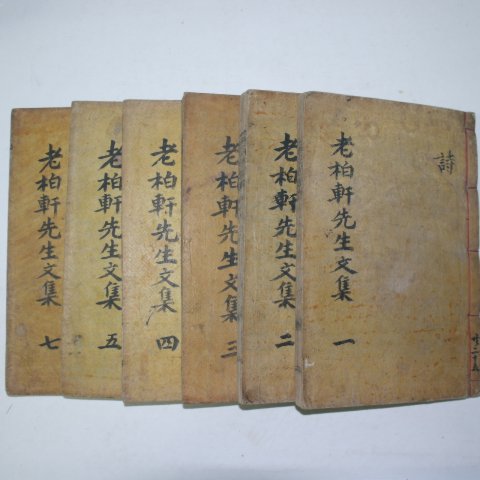 老柏軒先生文集 一
詩
老柏軒先生文集 二
老柏軒先生文集 三
老柏軒先生文集 四
老柏軒先生文集 五
老柏軒先生文集 七